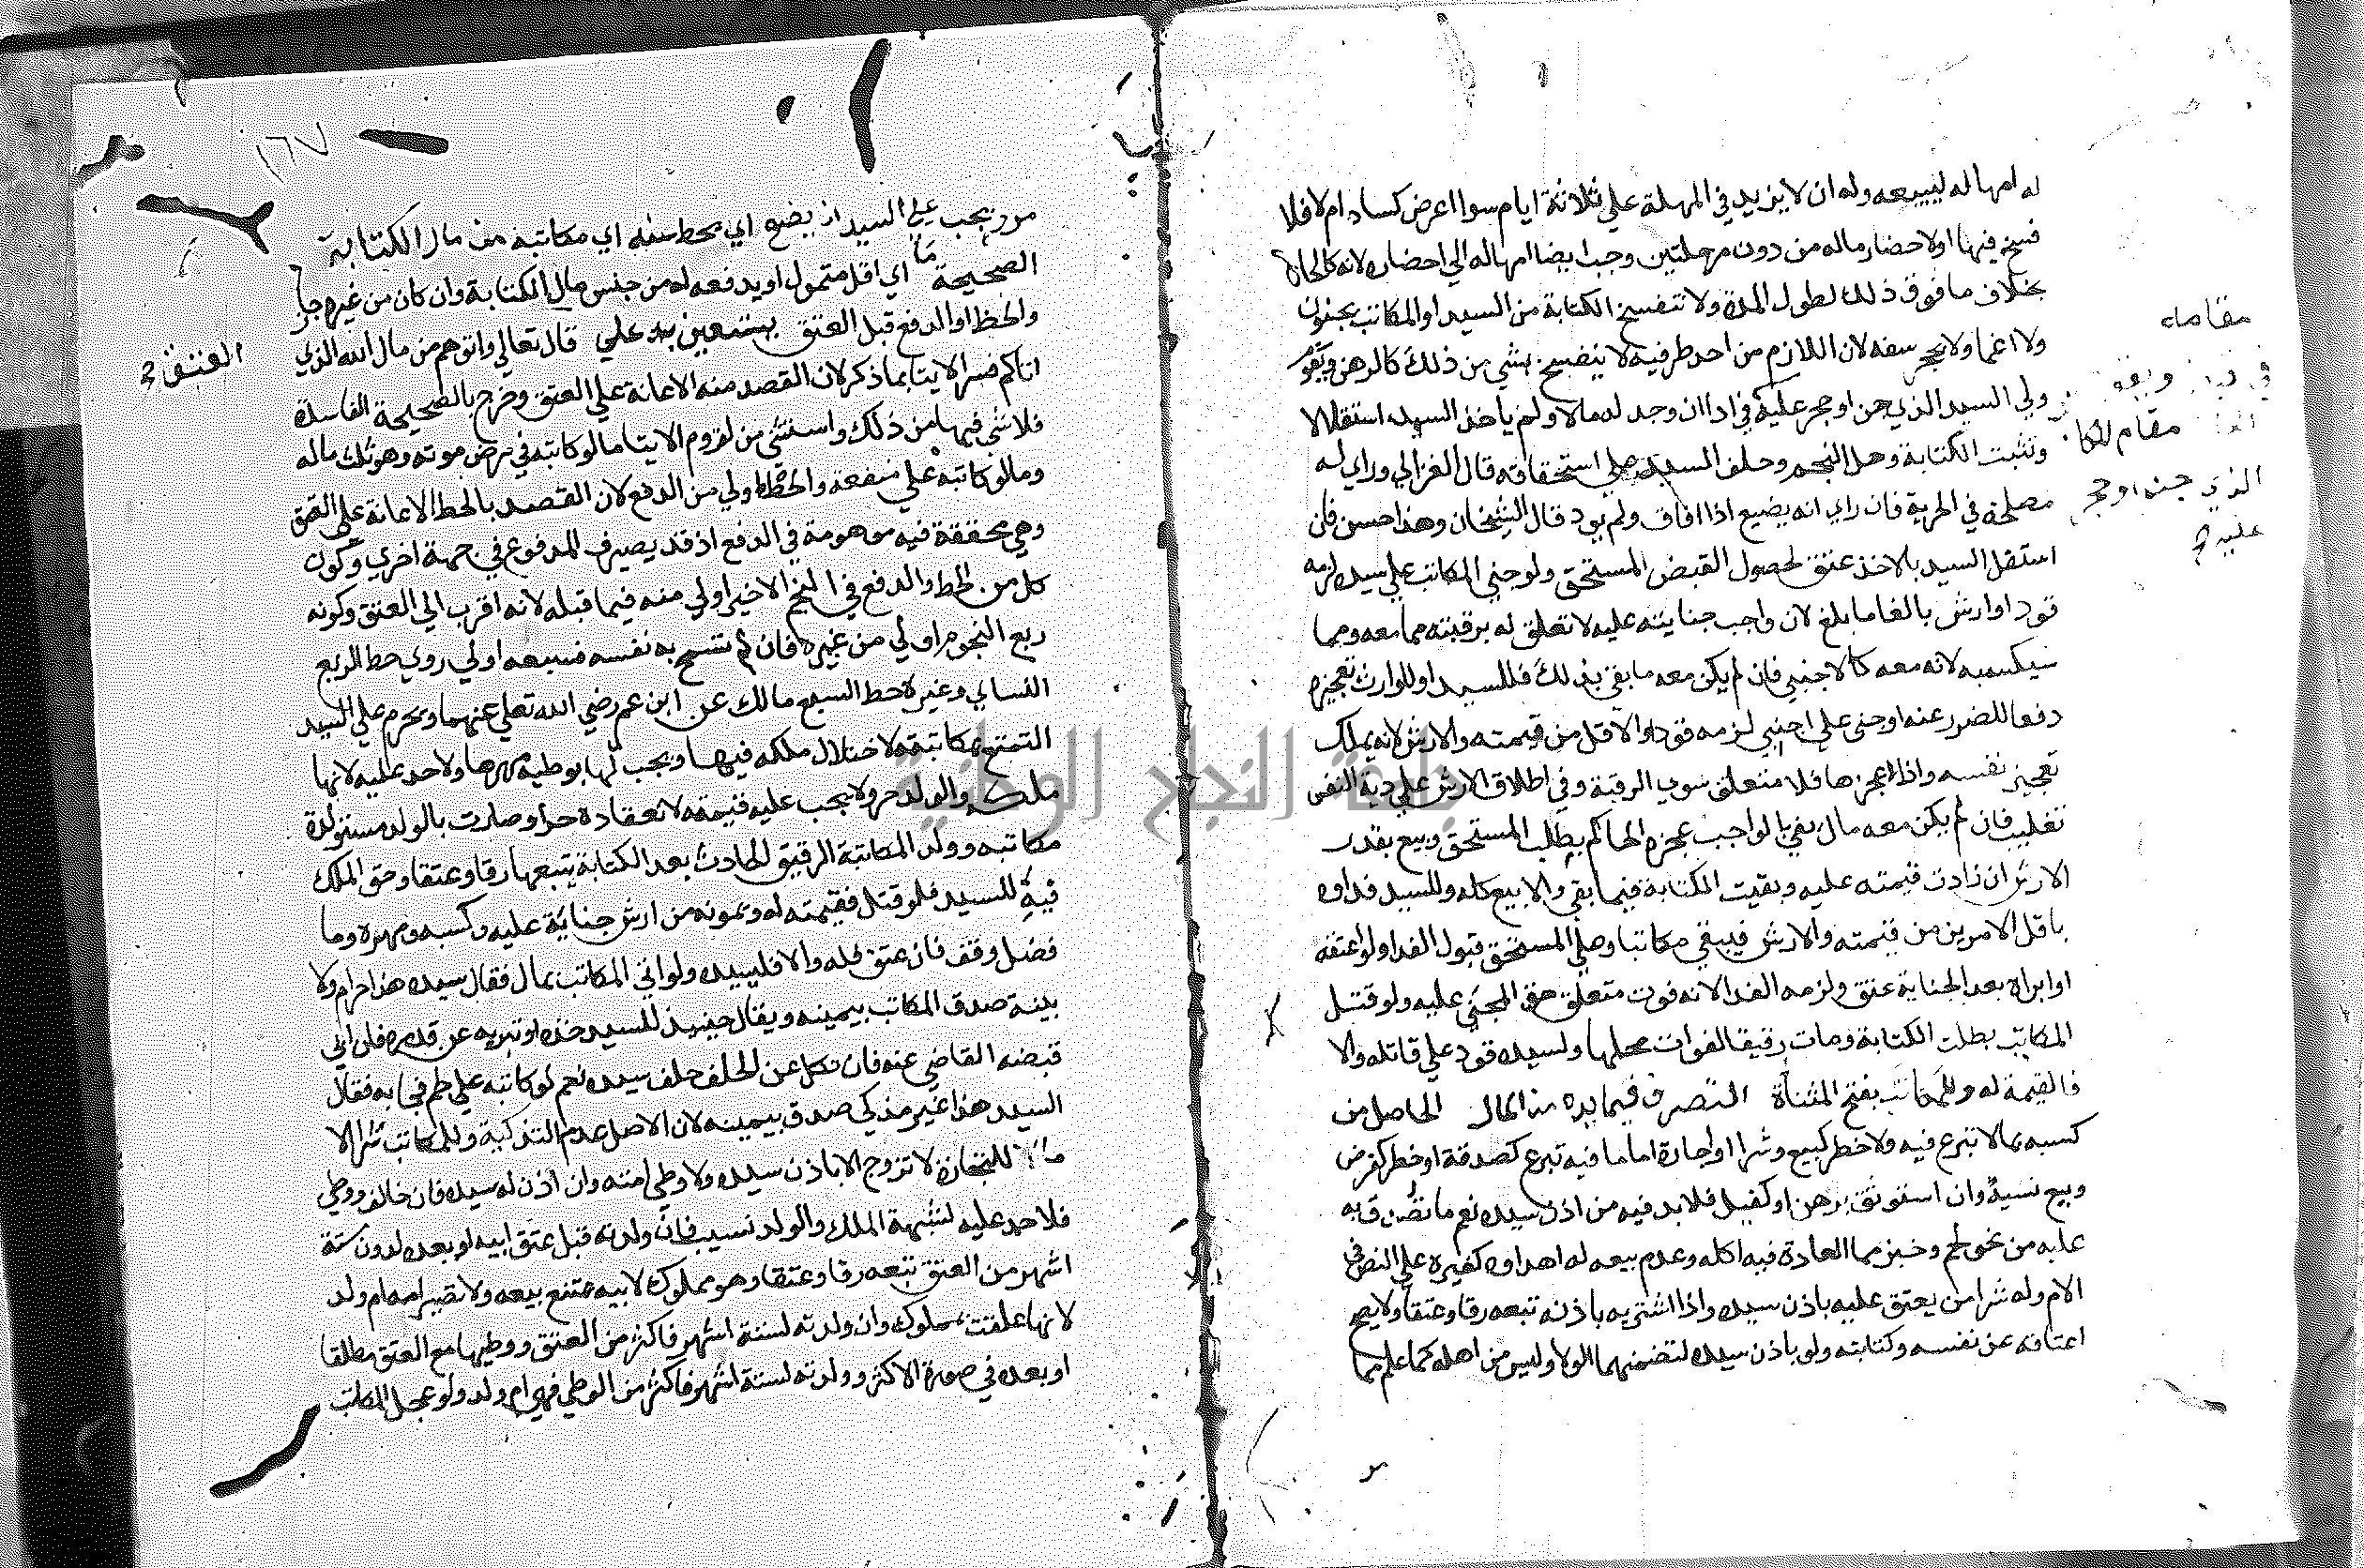 له امهاله ليبيعه وله ان لا يزيد في المهلة علي ثلاثة ايام سوا اعرض كساد ام لا فلا
فسخ فيها اولا حضار ماله من دون مرحلتين وجب ايضا امهاله الي احضاره لانه كالحاة
بخلاف ما فوق ذلك لطول المدة ولا تنفسخ الكتابة من السيد او المكاتب بجنون
ولا اغما ولا بحجر سفه لان اللازم من احد طرفيه لا ينفسخ بشي من ذلك كالرهن ويقوم
ولي السيد الذي جن او حجر عليه في ادا ان وجد له مالا ولم ياخذ السيد استقلالا
وتثبت الكتابة وحل النجم وحلف السيد علي استحقاقه قال الغزالي وراي له
مصلحة في الحرية فان راي انه يضيع اذا افاق ولم يود قال الشيخان وهذا حسن فان
استقل السيد بالاخذ عتق لحصول القبض المستحق ولو جني المكاتب علي سيده لزمه
قود او ارش بالغا ما بلغ لان واجب جنايته عليه لا تعلق له برقبته مما معه ومما
سيكسبه لانه معه كالاجنبي فان لم يكن معه ما يفي بذلك فللسيد او للوارث تعجيزه
دفعا للضرر عنه او جني علي اجنبي لزمه قود او الاقل من قيمته والارش لانه يملك
تعجيز نفسه واذا عجزها فلا متعلق سوي الرقبة وفي اطلاق الارش علي دية النفس
تغليب فان لم يكن معه مال يفي بالواجب عجزه الحاكم بطلب المستحق وبيع بقدر
الارش ان زادت قيمته عليه وبقيت الكتابة فيما بقي والا بيع كله وللسيد فداوه
باقل الامرين من قيمته والارش فيبقي مكاتبا وعلي المستحق قبول الفدا ولو اعتقه
او ابراه بعد الجناية عتق ولزمه الفدا لانه فوت متعلق حق المجني عليه ولو قتل
المكاتب بطلت الكتابة ومات رقيقا لفوات محلها ولسيده قود علي قاتله والا
فالقيمة له وللمكاتب بفتح المثناة التصرف فيما بيده من المال الحاصل من
كسبه بما لا تبرع فيه ولا خطر كبيع وشرا واجارة اما ما فيه تبرع كصدقة او خطر كقرض
وبيع نسيئة وان استوثق برهن او كفيل فلا بد فيه من اذن سيده نعم ما تصدق به
عليه من نحو لحم وخبز مما العادة فيه اكله وعدم بيعه له اهداوه كغيره علي النص في
الام وله شرا من يعتق عليه باذن سيده واذا اشتريه باذنه تبعه رقا وعتقا ولا يصح
اعتاقه عن نفسه وكتابته ولو باذن سيده لتضمنهما الولا وليس من اهله كما علم مما
مقامه
مقام المكا
الذي جن او حجر
عليه
١٦٧
مر ويجب علي السيد ان يضع اي يحط عنه اي مكاتبه من مال الكتابة
الصحيحة ما اي اقل متمول او يدفعه له من جنس مال الكتابة وان كان من غيره جاز
والحط او الدفع قبل العتق يستعين به علي قال تعالي واتوهم من مال الله الذي
اتاكم فسر الايتا بما ذكر لان القصد منه الاعانة علي العتق وخرج بالصحيحة الفاسدة
فلا شي فيها من ذلك واستثني من لزوم الايتا ما لو كاتبه في مرض موته وهو ثلث ماله
وما لو كاتبه علي منفعة والحط اولي من الدفع لان القصد بالحط الاعانة علي العتق
وهي محققة فيه موهومة في الدفع اذ قد يصرف المدفوع في جهة اخري وكون
كل من الحط والدفع في النجم الاخير اولي منه فيما قبله لانه اقرب الي العتق وكونه
ربع النجوم اولي من غيره فان لم تسمح به نفسه فسبعه اولي روي حط الربع
النساي وغيره وحط السبع مالك عن ابن عمر رضي الله تعالي عنهما ويحرم علي السيد
التمتع بمكاتبته لاختلال ملكه فيها ويجب لها بوطيه مهرها ولا حد عليه لانها
ملكه والولد حر ولا يجب عليه قيمته لانعقاده حرا وصارت بالولد مستولدة
مكاتبه وولد المكاتبة الرقيق الحادث بعد الكتابة يتبعها رقا وعتقا وحق الملك
فيه للسيد فلو قتل فقيمته له ويمونه من ارش جناية عليه وكسبه ومهره وما
فضل وقف فان عتق فله والا فلسيده ولو اتي المكاتب بمال فقال سيده هذا حرام ولا
بينة صدق المكاتب بيمينه ويقال حينيذ للسيد خذه او تبريه عن قدره فان ابي
قبضه القاضي عنه فان نكل عن الحلف حلف سيده نعم لو كاتبه علي لحم فجا به فقال
السيد هذا غير مذكي صدق بيمينه لان الاصل عدم التذكية وللمكاتب شرا الا
ما للتجارة لا تزوج الا باذن سيده ولا وطي امته وان اذن له سيده فان خالف ووطي
فلا حد عليه لشبهة الملك والولد نسيب فان ولدته قبل عتق ابيه او بعده لدون ستة
اشهر من العتق تبعه رقا وعتقا وهو مملوك لابيه يمتنع بيعه ولا تصير امه ام ولد
لانها علقت بمملوك وان ولدته لستة اشهر فاكثر من العتق ووطيها مع العتق مطلقا
او بعده في صورة الاكثر وولدته لستة اشهر فاكثر من الوطي فهي ام ولد ولو عجل المكاتب
العتق
جامعة النجاح الوطنية